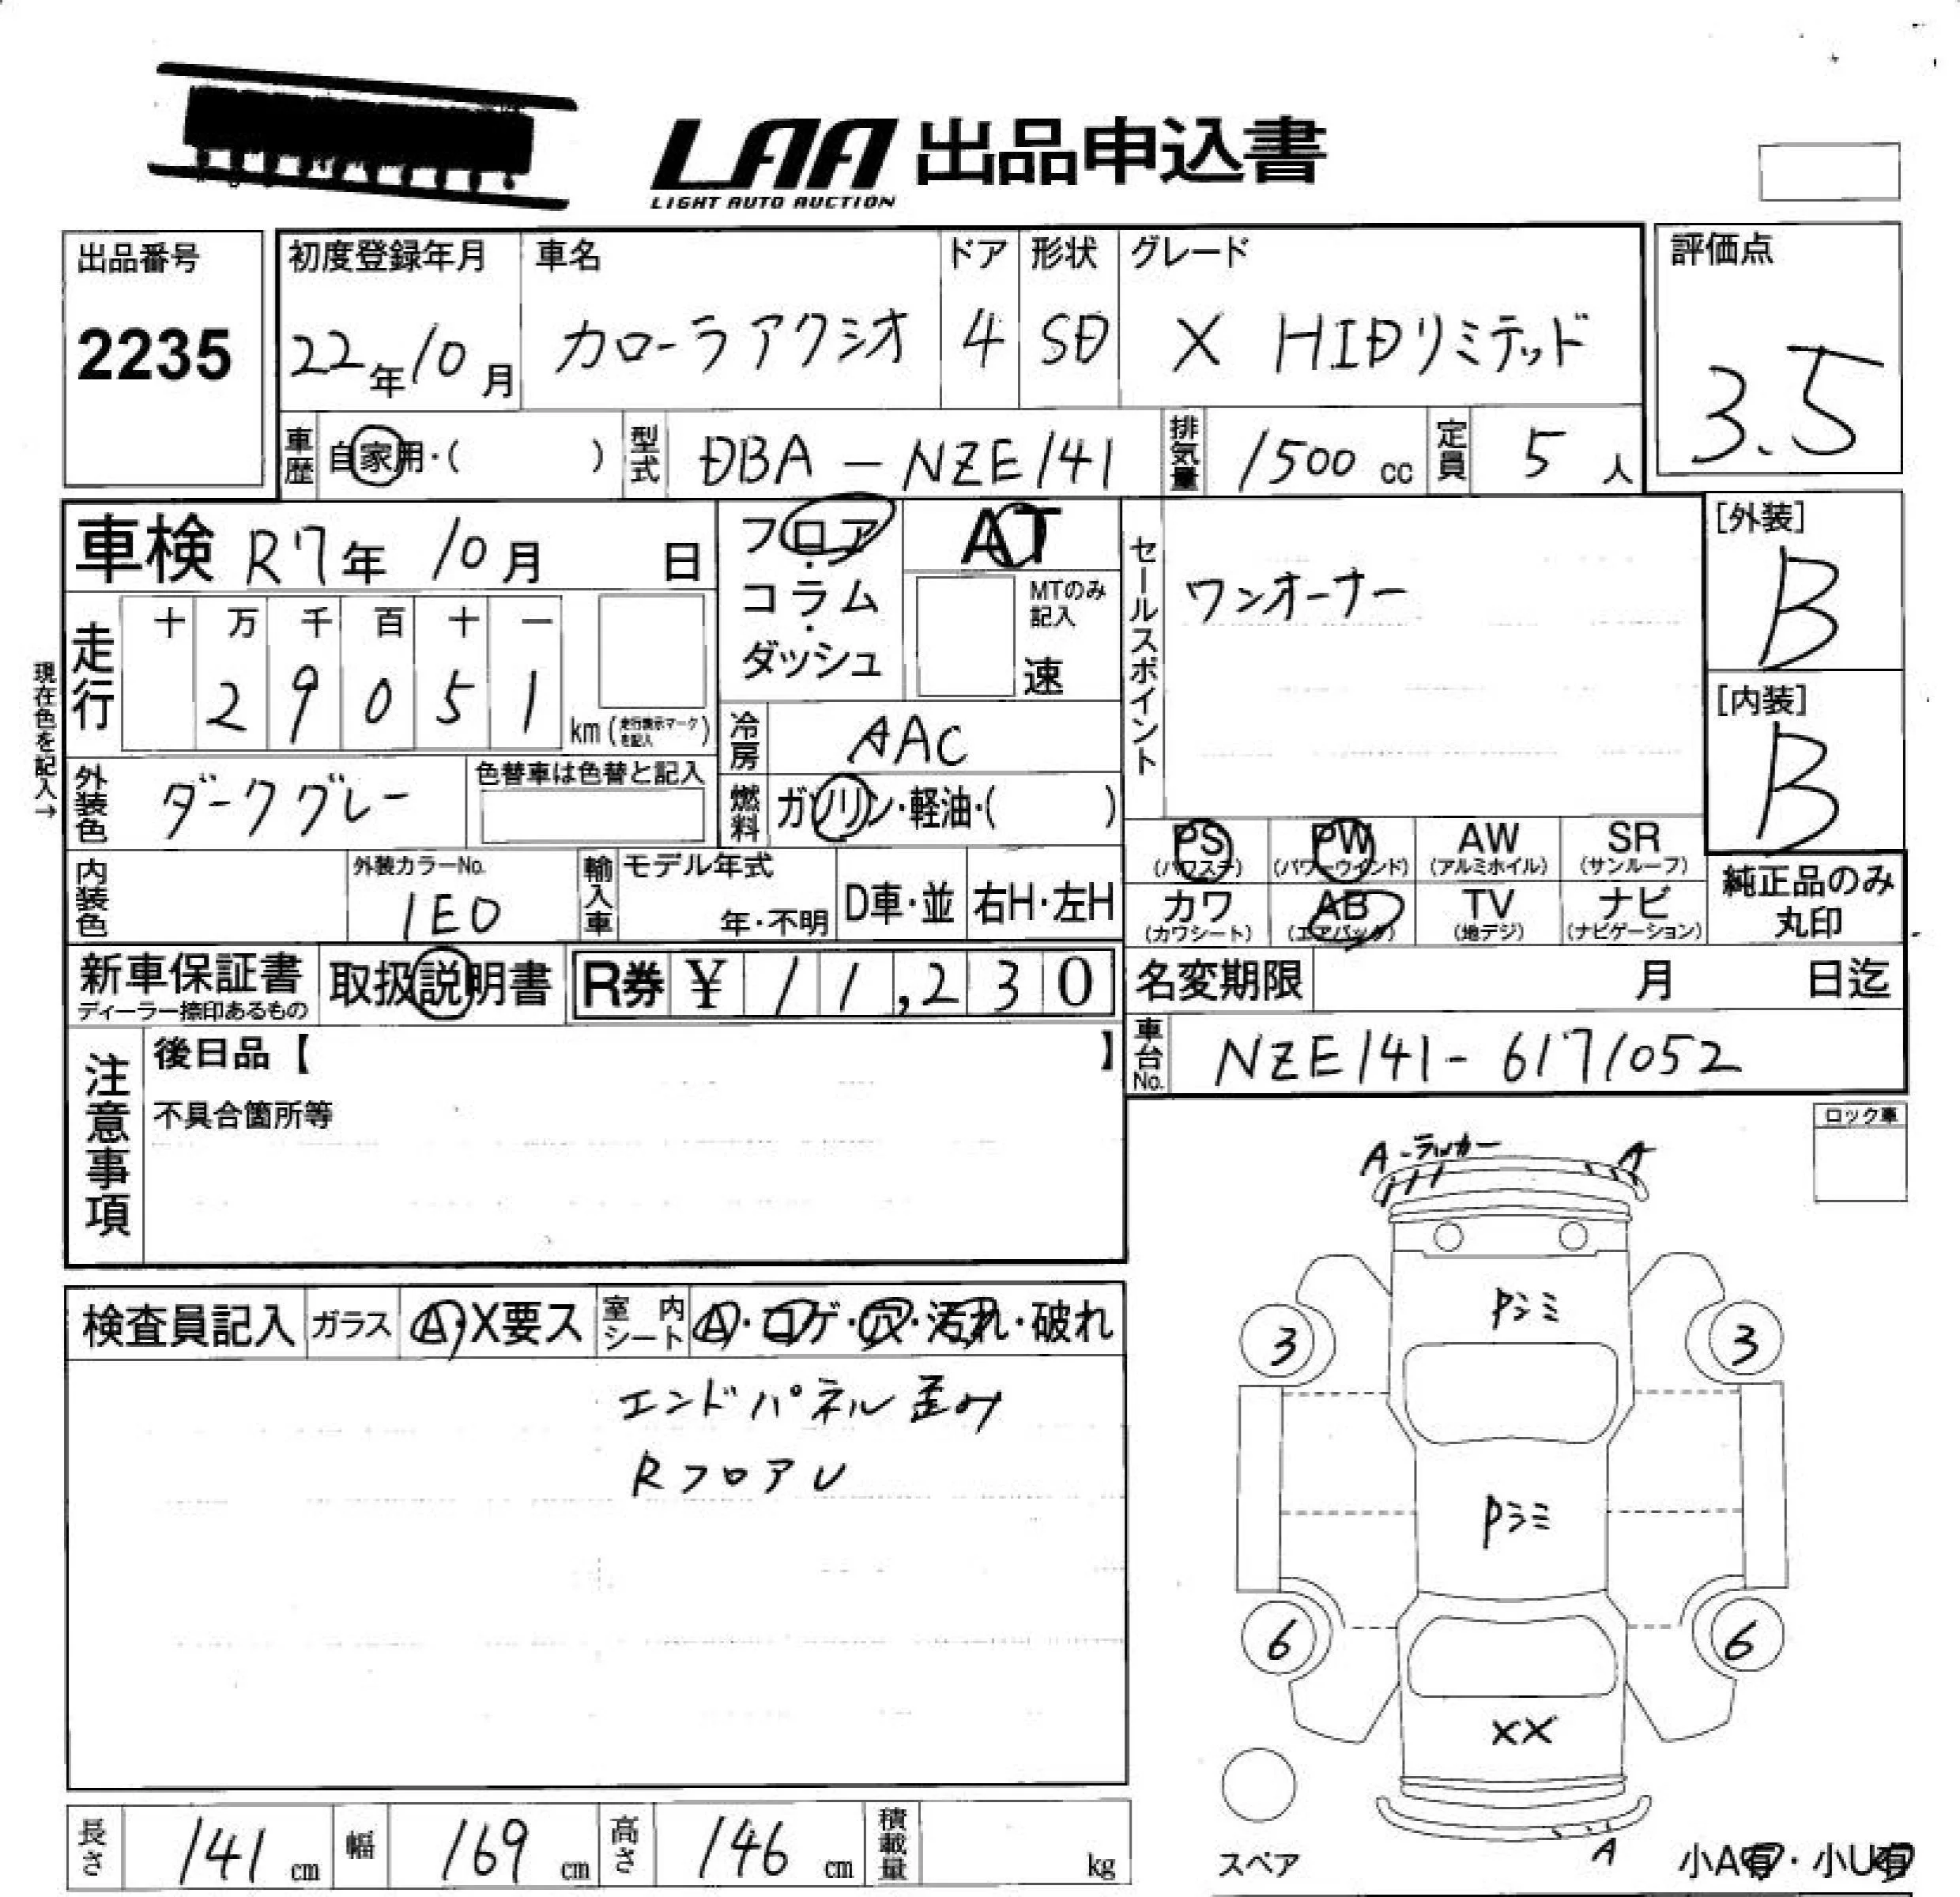 LAA 出品申込書
LIGHT AUTO AUCTION
出品番号
2235
初度登録年月
22年10月
車名
カローラアクシオ
ドア
4
形状
SD
グレード
X HIDリミテッド
評価点
3.5
車歴 自家用・( )
型式 DBA-NZE141
排気量 1500 cc
定員 5 人
車検 R7年 10月 日
フロア・コラム・ダッシュ
AT
MTのみ記入
速
セールスポイント
ワンオーナー
[外装]
B
[内装]
B
現在色を記入→
走行
十 万 千 百 十 一
2 9 0 5 1
km (走行表示マークを記入)
冷房 AAC
燃料 ガソリン・軽油・( )
外装色 ダークグレー
色替車は色替と記入
内装色
外装カラーNo.
1E0
輸入車
モデル年式
年・不明
D車・並
右H・左H
PS (パワステ)
PW (パワーウインド)
AW (アルミホイル)
SR (サンルーフ)
カワ (カワシート)
AB (エアバック)
TV (地デジ)
ナビ (ナビゲーション)
純正品のみ丸印
新車保証書
ディーラー捺印あるもの
取扱説明書
R券 ¥ 11,230
名変期限 月 日迄
車台No. NZE141-6171052
注意事項
後日品【 】
不具合箇所等
ロック車
A-ラッカー
A
Pシミ
3
3
Pシミ
6
6
XX
A
スペア
小A有・小U有
検査員記入
ガラス A・X要ス
室内シート A・コゲ・穴・汚れ・破れ
エンドパネル歪み
RフロアU
長さ 141 cm
幅 169 cm
高さ 146 cm
積載量 kg